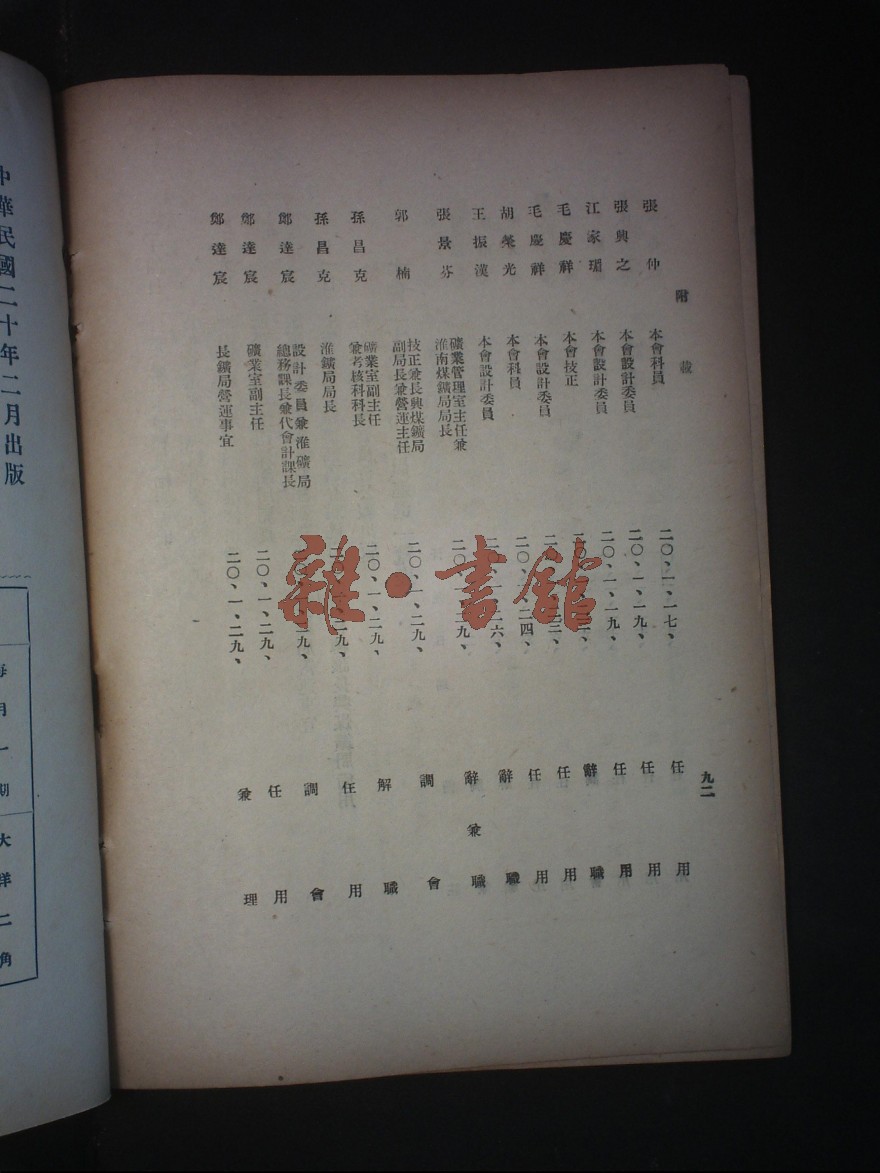 附載
九二
張仲 本會科員 二〇、一、一七、 任用
張興之 本會設計委員 二〇、一、一九、 任用
江家瑂 本會設計委員 二〇、一、一九、 任用
毛慶祥 本會技正 辭職
毛慶祥 本會設計委員 任用
胡榮光 本會科員 二〇、一、二四、 任用
王振漢 本會設計委員 二六、 辭職
張景芬 礦業管理室主任兼
淮南煤鑛局局長 二〇 二九、 辭兼職
郭楠 技正兼長興煤鑛局
副局長兼營運主任 二〇、一、二九、 調會
孫昌克 礦業室副主任
兼考核科科長 二〇、一、二九、 解職
孫昌克 淮鑛局局長 二九、 任用
鄭達宸 設計委員兼淮礦局
總務課長兼代會計課長 二九、 調會
鄭達宸 礦業室副主任 二〇、一、二九、 任用
鄭達宸 長鑛局營運事宜 二〇、一、二九、 兼理
雜·書館
中華民國二十年二月出版
每月一期
大洋二角